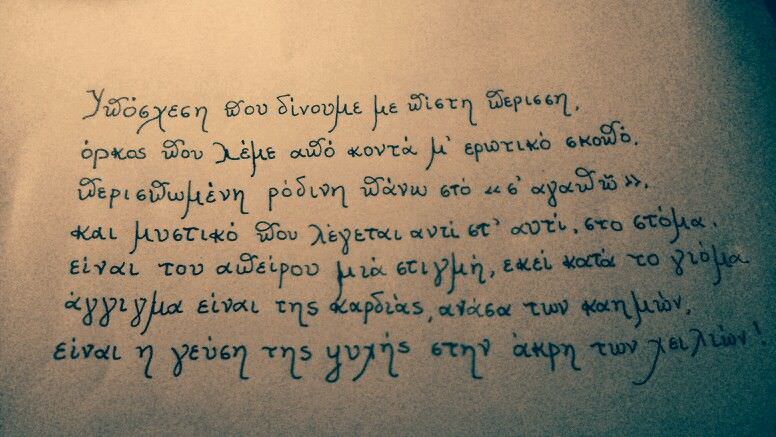 Υπόσχεση που δίνουμε με πίστη περισση,
όρκος που λέμε από κοντά μ' ερωτικό σκοπό,
περισπωμένη ρόδινη πάνω στό «σ' αγαπῶ»,
και μυστικό που λέγεται αντί στ' αυτί, στο στόμα.
είναι του απείρου μιά στιγμή, εκεί κατά το γιόμα
άγγιγμα είναι της καρδιάς, ανάσα των καημών,
είναι η γεύση της ψυχής στην άκρη των χειλιών!